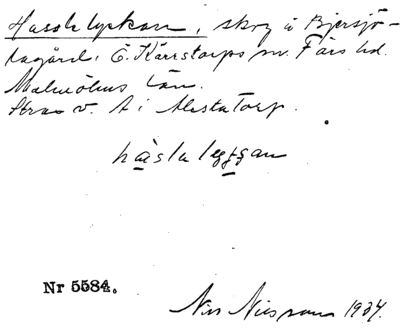 Hasslelyckan, skog å Bjersjö-
lagård, Ö. Kärrstorps sn. Färs hd.
Malmöhus län.
Strax v. A i Alestatorp.
hasslalęggan
Nr 5584.
Nils Nilsson 1934.